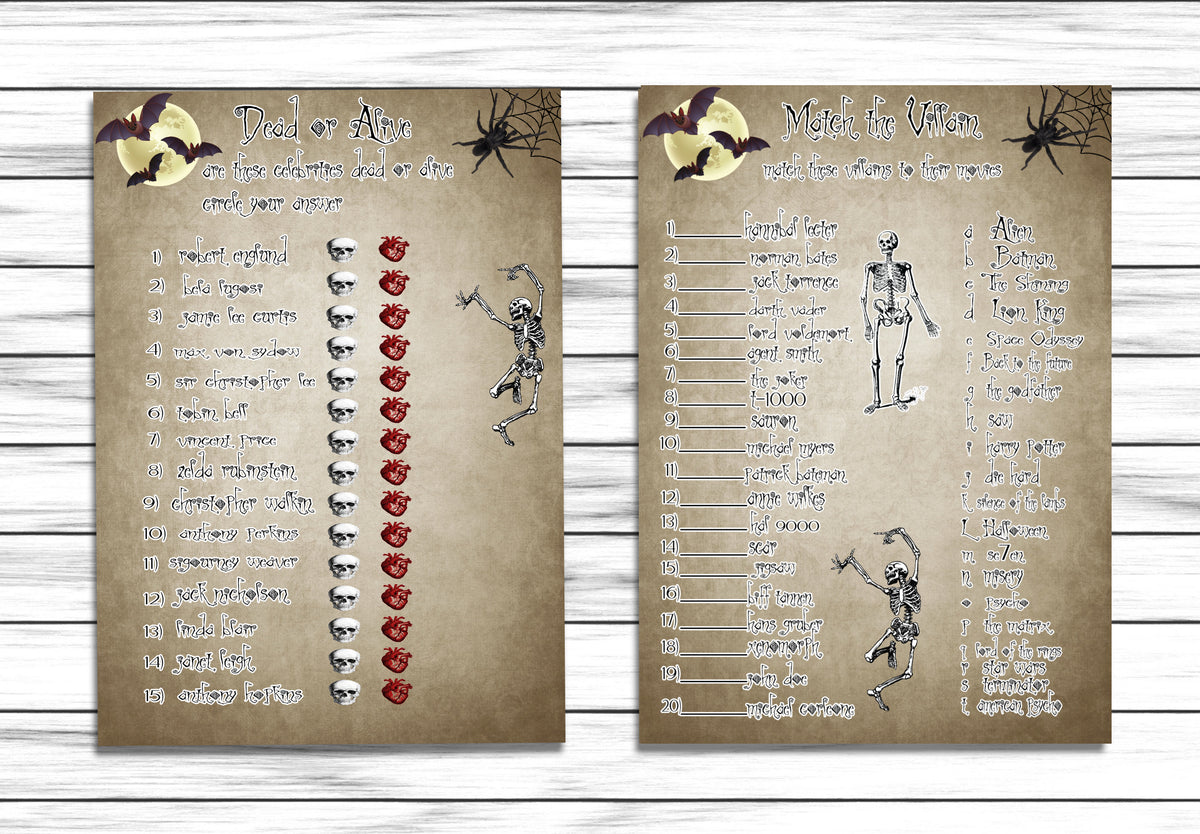 Dead or Alive
are these celebrities dead or alive
circle your answer
1) robert englund
2) bela lugosi
3) jamie lee curtis
4) max von sydow
5) sir christopher lee
6) tobin bell
7) vincent price
8) zelda rubinstein
9) christopher walkin
10) anthony perkins
11) sigourney weaver
12) jack nicholson
13) linda blair
14) janet leigh
15) anthony hopkins
Match the Villain
match these villains to their movies
1)________hannibal lecter
2)________norman bates
3)________jack torrence
4)________darth vader
5)________lord voldemort
6)________agent smith
7)________the joker
8)________t-1000
9)________sauron
10)________michael myers
11)________patrick bateman
12)________annie wilkes
13)________hal 9000
14)________scar
15)________jigsaw
16)________biff tannen
17)________hans gruber
18)________xenomorph
19)________john doe
20)________michael corleone
a Alien
b Batman
c The Shining
d Lion King
e Space Odyssey
f Back to the future
g the godfather
h saw
i harry potter
j die hard
k silence of the lambs
L Halloween
m se7en
n misery
o psycho
p the matrix
q lord of the rings
r star wars
s terminator
t american psycho